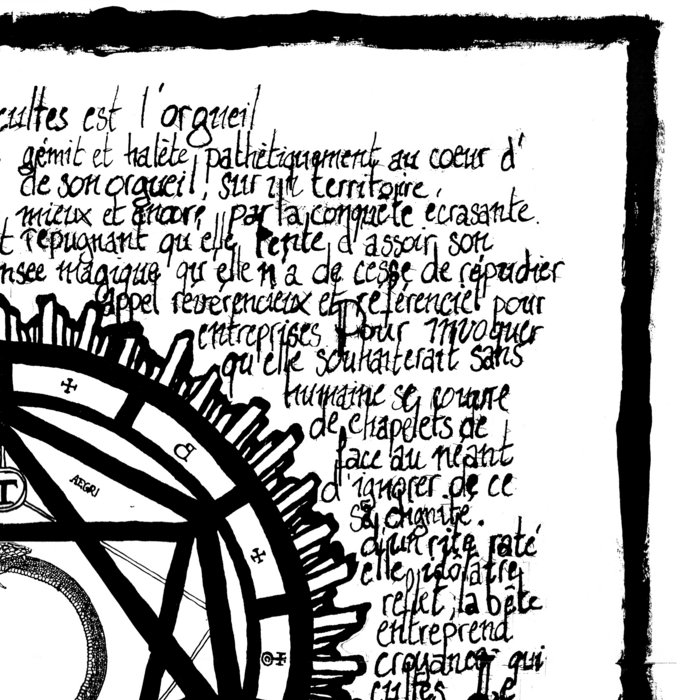 cultes est l'orgueil
gémit et halète pathétiquement au coeur d'
de son orgueil, sur un territoire,
mieux et encore, par la conquête écrasante.
t répugnant qu'elle tente d'assoir son
nsée magique qu'elle n'a de cesse de répudier
appel révérencieux et référenciel pour
entreprises Pour invoquer
qu'elle souhaiterait sans
humaine se couvre
de chapelets de
face au néant
d'ignorer de ce
sa dignité.
d'un rite raté
elle idolâtre
reflet, la bête
entreprend
croyances qui
cultes
AEGRI